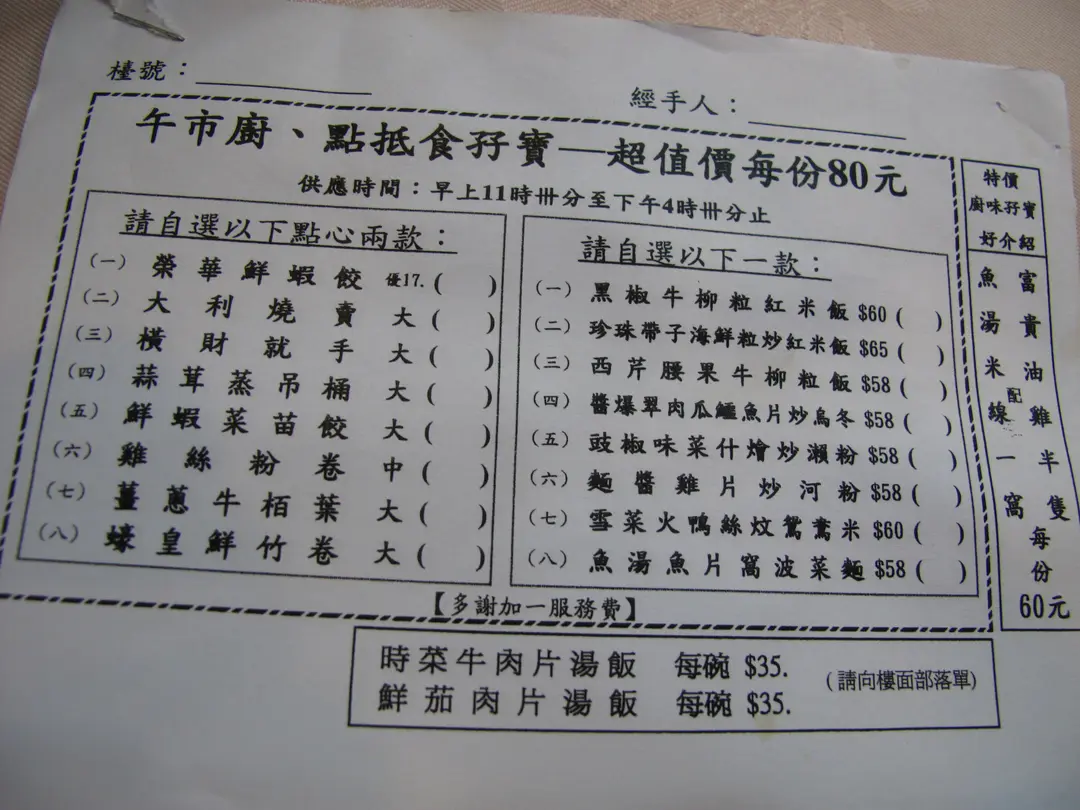 檯號：
經手人：
午市廚、點抵食孖寶—超值價每份80元
供應時間：早上11時卅分至下午4時卅分止
請自選以下點心兩款：
(一) 榮華鮮蝦餃 優17. ( )
(二) 大利燒賣 大 ( )
(三) 橫財就手 大 ( )
(四) 蒜茸蒸吊桶 大 ( )
(五) 鮮蝦菜苗餃 大 ( )
(六) 雞絲粉卷 中 ( )
(七) 薑蔥牛栢葉 大 ( )
(八) 蠔皇鮮竹卷 大 ( )
請自選以下一款：
(一) 黑椒牛柳粒紅米飯 $60 ( )
(二) 珍珠帶子海鮮粒炒紅米飯 $65 ( )
(三) 西芹腰果牛柳粒飯 $58 ( )
(四) 醬爆翠肉瓜鱷魚片炒烏冬 $58 ( )
(五) 豉椒味菜什燴炒瀨粉 $58 ( )
(六) 麵醬雞片炒河粉 $58 ( )
(七) 雪菜火鴨絲炆鴛鴦米 $60 ( )
(八) 魚湯魚片窩波菜麵 $58 ( )
【多謝加一服務費】
特價
廚味孖寶
好介紹
富貴油雞半隻
配
魚湯米線一窩
每份
60元
時菜牛肉片湯飯 每碗 $35.
鮮茄肉片湯飯 每碗 $35.
(請向樓面部落單)